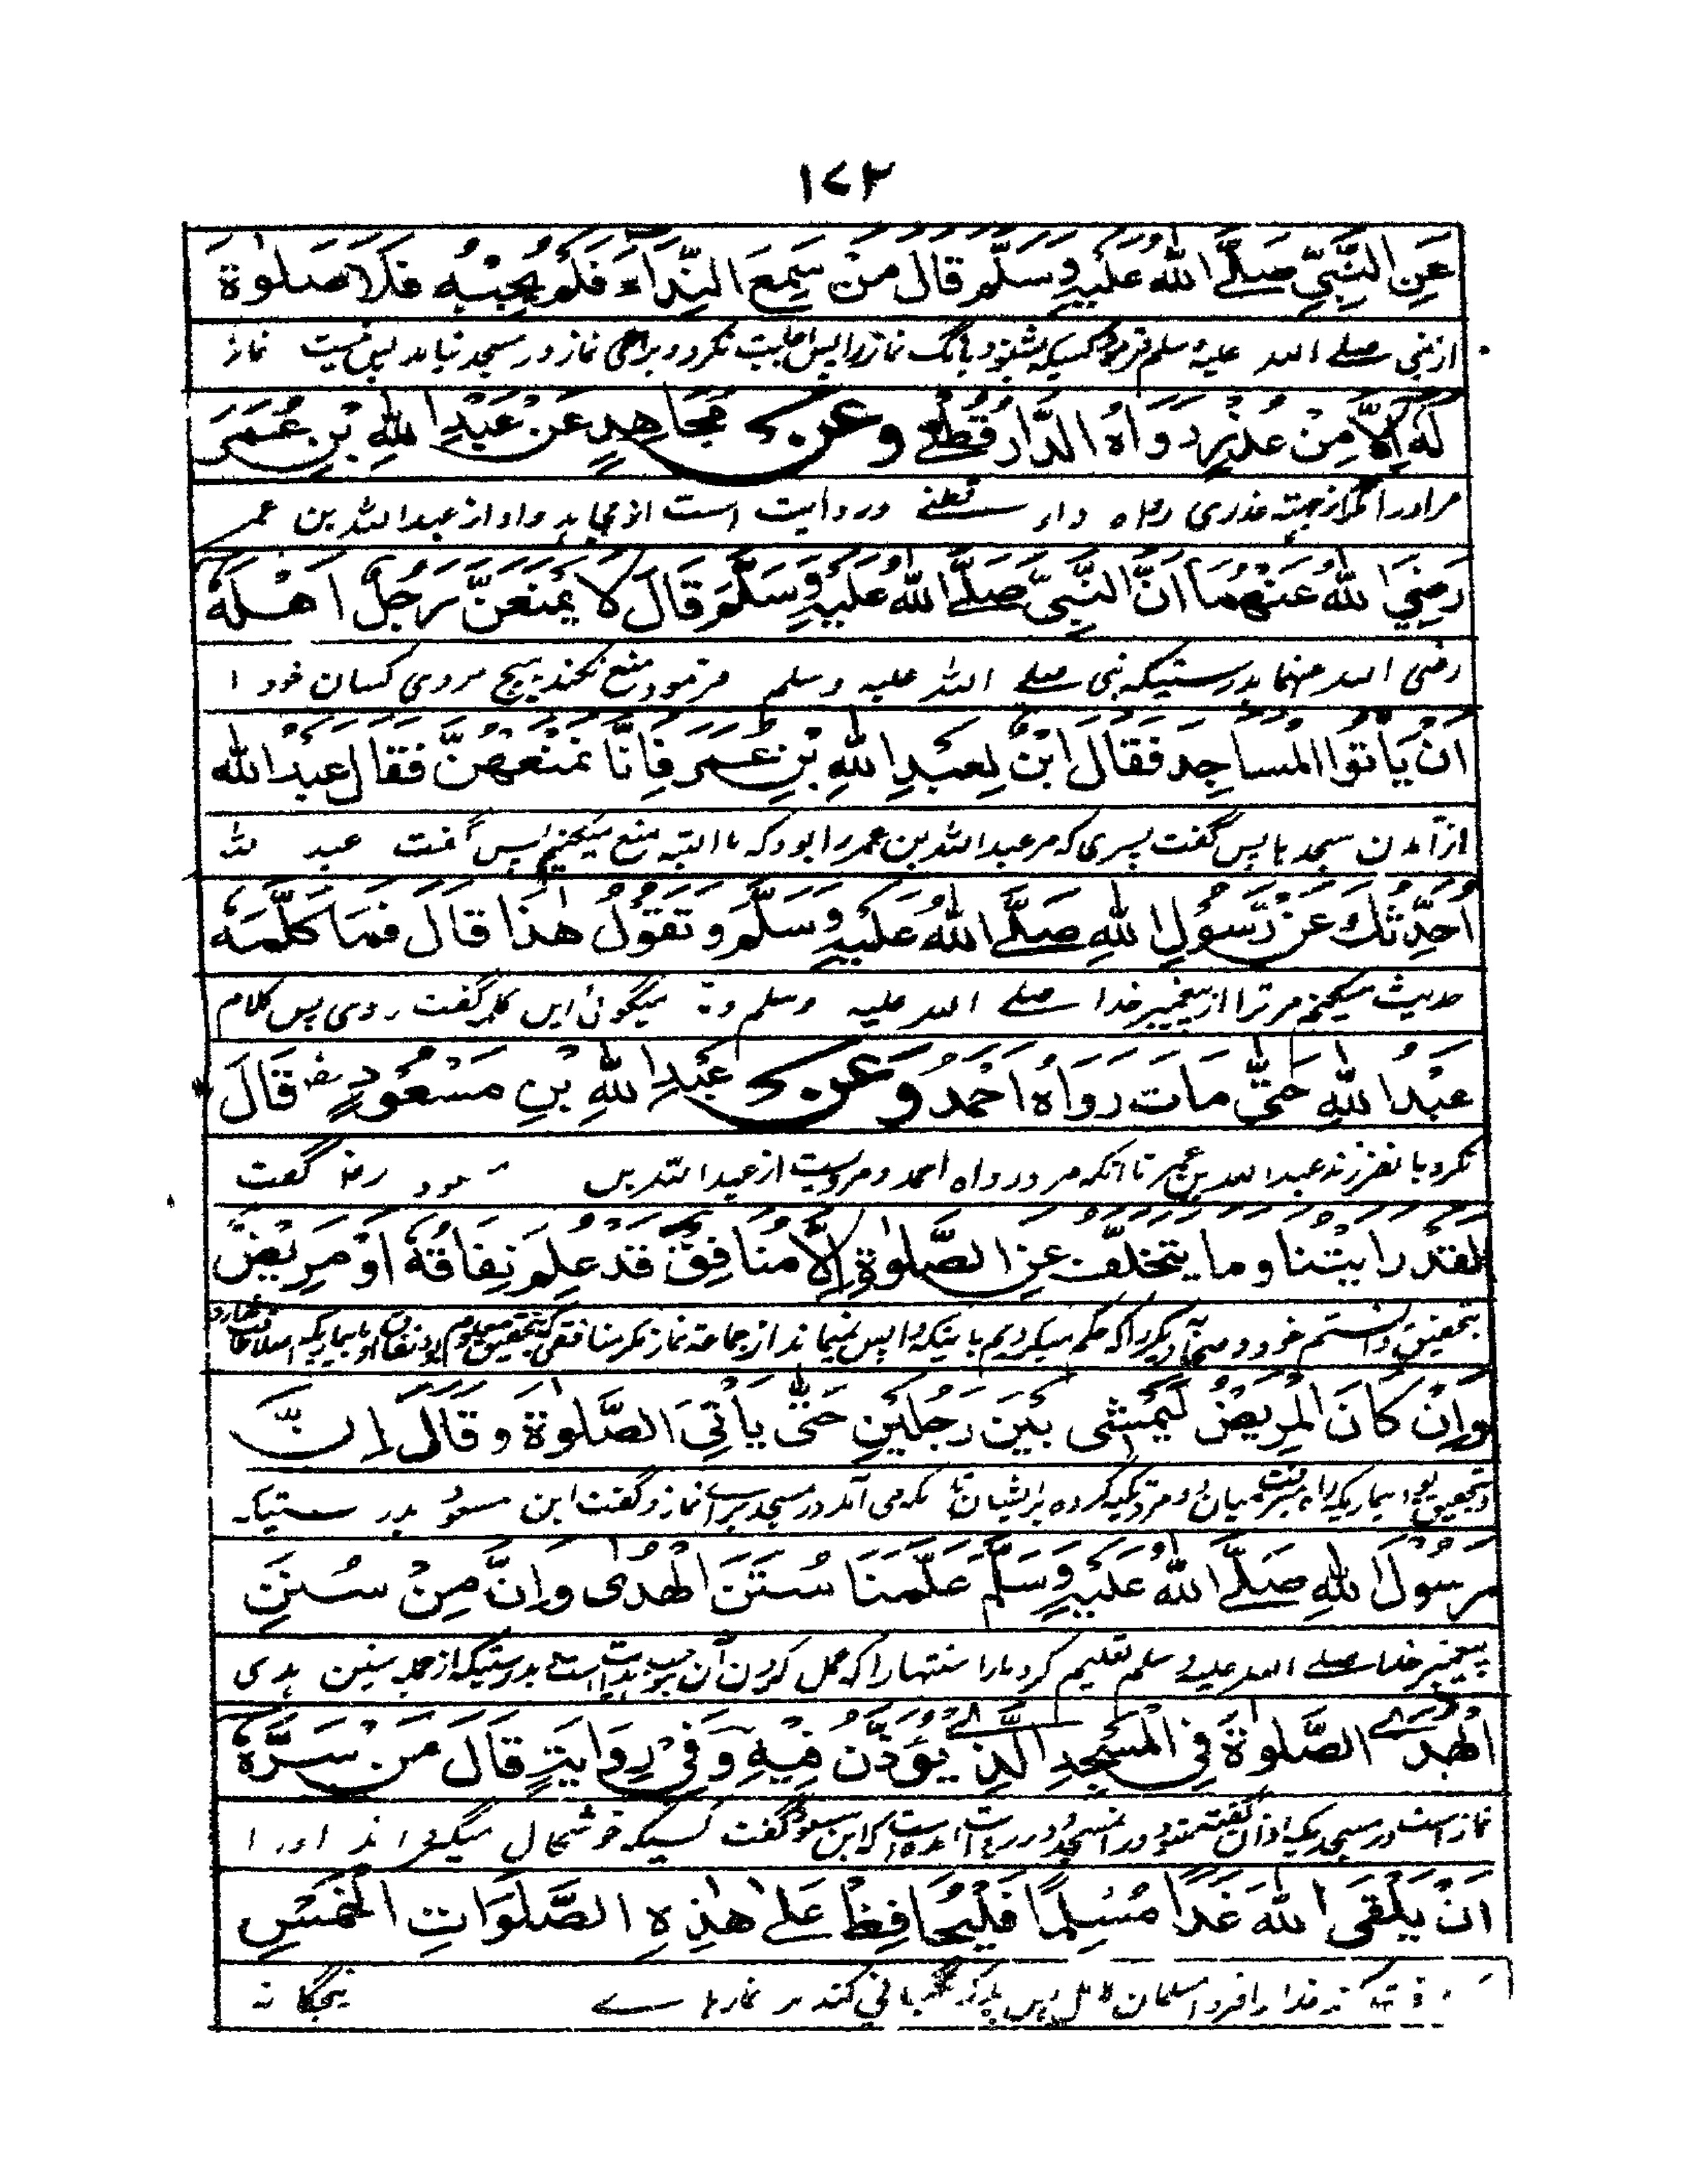 ١٧٢
عَنِ النَّبِيِّ صَلَّے اللهُ عَلَيْهِ وَسَلَّمَ قَالَ مَنْ سَمِعَ النِّدَاءَ فَلَمْ يُجِبْهُ فَلَا صَلٰوةَ
از نبی صلے اللہ علیہ وسلم فرمود کسیکہ بشنود بانگ نماز را پس اجابت نکرد و برای نماز در مسجد نیاید پس نیست نماز
لَهُ إِلَّا مِنْ عُذْرٍ رَوَاهُ الدَّارَقُطْنِے وَعَنْ مُجَاهِدٍ عَنْ عَبْدِ اللهِ بْنِ عُمَرَ
مر او را مگر از جہتہ عذری رواہ دار قطنے و روایت است از مجاہد و او از عبد اللہ بن عمر
رَضِيَ اللهُ عَنْهُمَا اَنَّ النَّبِيَّ صَلَّے اللهُ عَلَيْهِ وَسَلَّمَ قَالَ لَا يَمْنَعَنَّ رَجُلٌ اَهْلَهُ
رضی اللہ عنہما بدرستیکہ نبی صلے اللہ علیہ وسلم فرمود منع نکند ہیچ مردی کسان خود ا
اَنْ يَاْتُوا الْمَسَاجِدَ فَقَالَ ابْنٌ لِعَبْدِ اللهِ بْنِ عُمَرَ فَاِنَّا نَمْنَعُهُنَّ فَقَالَ عَبْدُ الله
از آمدن مسجد ہا پس گفت پسری کہ مر عبد اللہ بن عمر را بود کہ ما البتہ منع میکنیم پس گفت عبد للہ
اُحَدِّثُكَ عَنْ رَّسُوْلِ اللهِ صَلَّے اللهُ عَلَيْهِ وَسَلَّمَ وَتَقُوْلُ هٰذَا قَالَ فَمَا كَلَّمَهُ
حدیث میکنم مر ترا از پیغمبر خدا صلے اللہ علیہ وسلم و تو میگوئی این کلمہ گفت راوی پس کلام
عَبْدُ اللهِ حَتّٰى مَاتَ رَوَاهُ اَحْمَدُ وَعَنْ عَبْدِ اللهِ بْنِ مَسْعُوْدٍ رض قَالَ
نکرد با فرزند عبد اللہ بن عمر تا آنکہ مرد رواہ احمد و مرویست از عبد اللہ بن مسعود رض گفت
لَقَدْ رَاَيْتُنَا وَمَا يَتَخَلَّفُ عَنِ الصَّلٰوةِ اِلَّا مُنَافِقٌ قَدْ عُلِمَ نِفَاقُهُ اَوْ مَرِيْضٌ
بتحقیق دانستم خود و صحابہ دیگر را کہ حکم میکردیم باینکہ واپس نمیماند از جماعۃ نماز مگر منافقی کہ بتحقیق معلوم بود نفاق او یا بیماریکہ
وَاِنْ كَانَ الْمَرِيْضُ لَيَمْشِى بَيْنَ رَجُلَيْنِ حَتّٰى يَاْتِىَ الصَّلٰوةَ وَقَالَ اِنَّ
و بتحقیق بود بیماریکہ راہ میرفت میان دو مرد تکیہ کردہ بر ایشان تا آنکہ می آمد در مسجد برای نماز و گفت ابن مسعود بدر ستیکہ
رَسُوْلَ اللهِ صَلَّے اللهُ عَلَيْهِ وَسَلَّمَ عَلَّمَنَا سُنَنَ الْهُدٰى وَاِنَّ مِنْ سُنَنِ
پیغمبر خدا صلے اللہ علیہ وسلم تعلیم کرد مارا سنتہا را کہ عمل کردن آن موجب ہدایت است بدرستیکہ از جملہ سنن ہدی
الْهُدٰے الصَّلٰوةَ فِى الْمَسْجِدِ الَّذِے يُؤَذَّنُ فِيْهِ وَفِىْ رِوَايَةٍ قَالَ مَنْ سَرَّهٗ
نماز است در مسجدیکہ اذان گفتہ میشود در آن مسجد و در روایت آمدہ است کہ ابن مسعود گفت کسیکہ خوشحال میگرداند اورا
اَنْ يَلْقَى اللهَ غَدًا مُسْلِمًا فَلْيُحَافِظْ عَلٰے هٰذِهِ الصَّلَوَاتِ الْخَمْسِ
خدا را فردا مسلمان کامل پس باید کہ نگہبانی کند بر نماز ہاے پنجگانہ